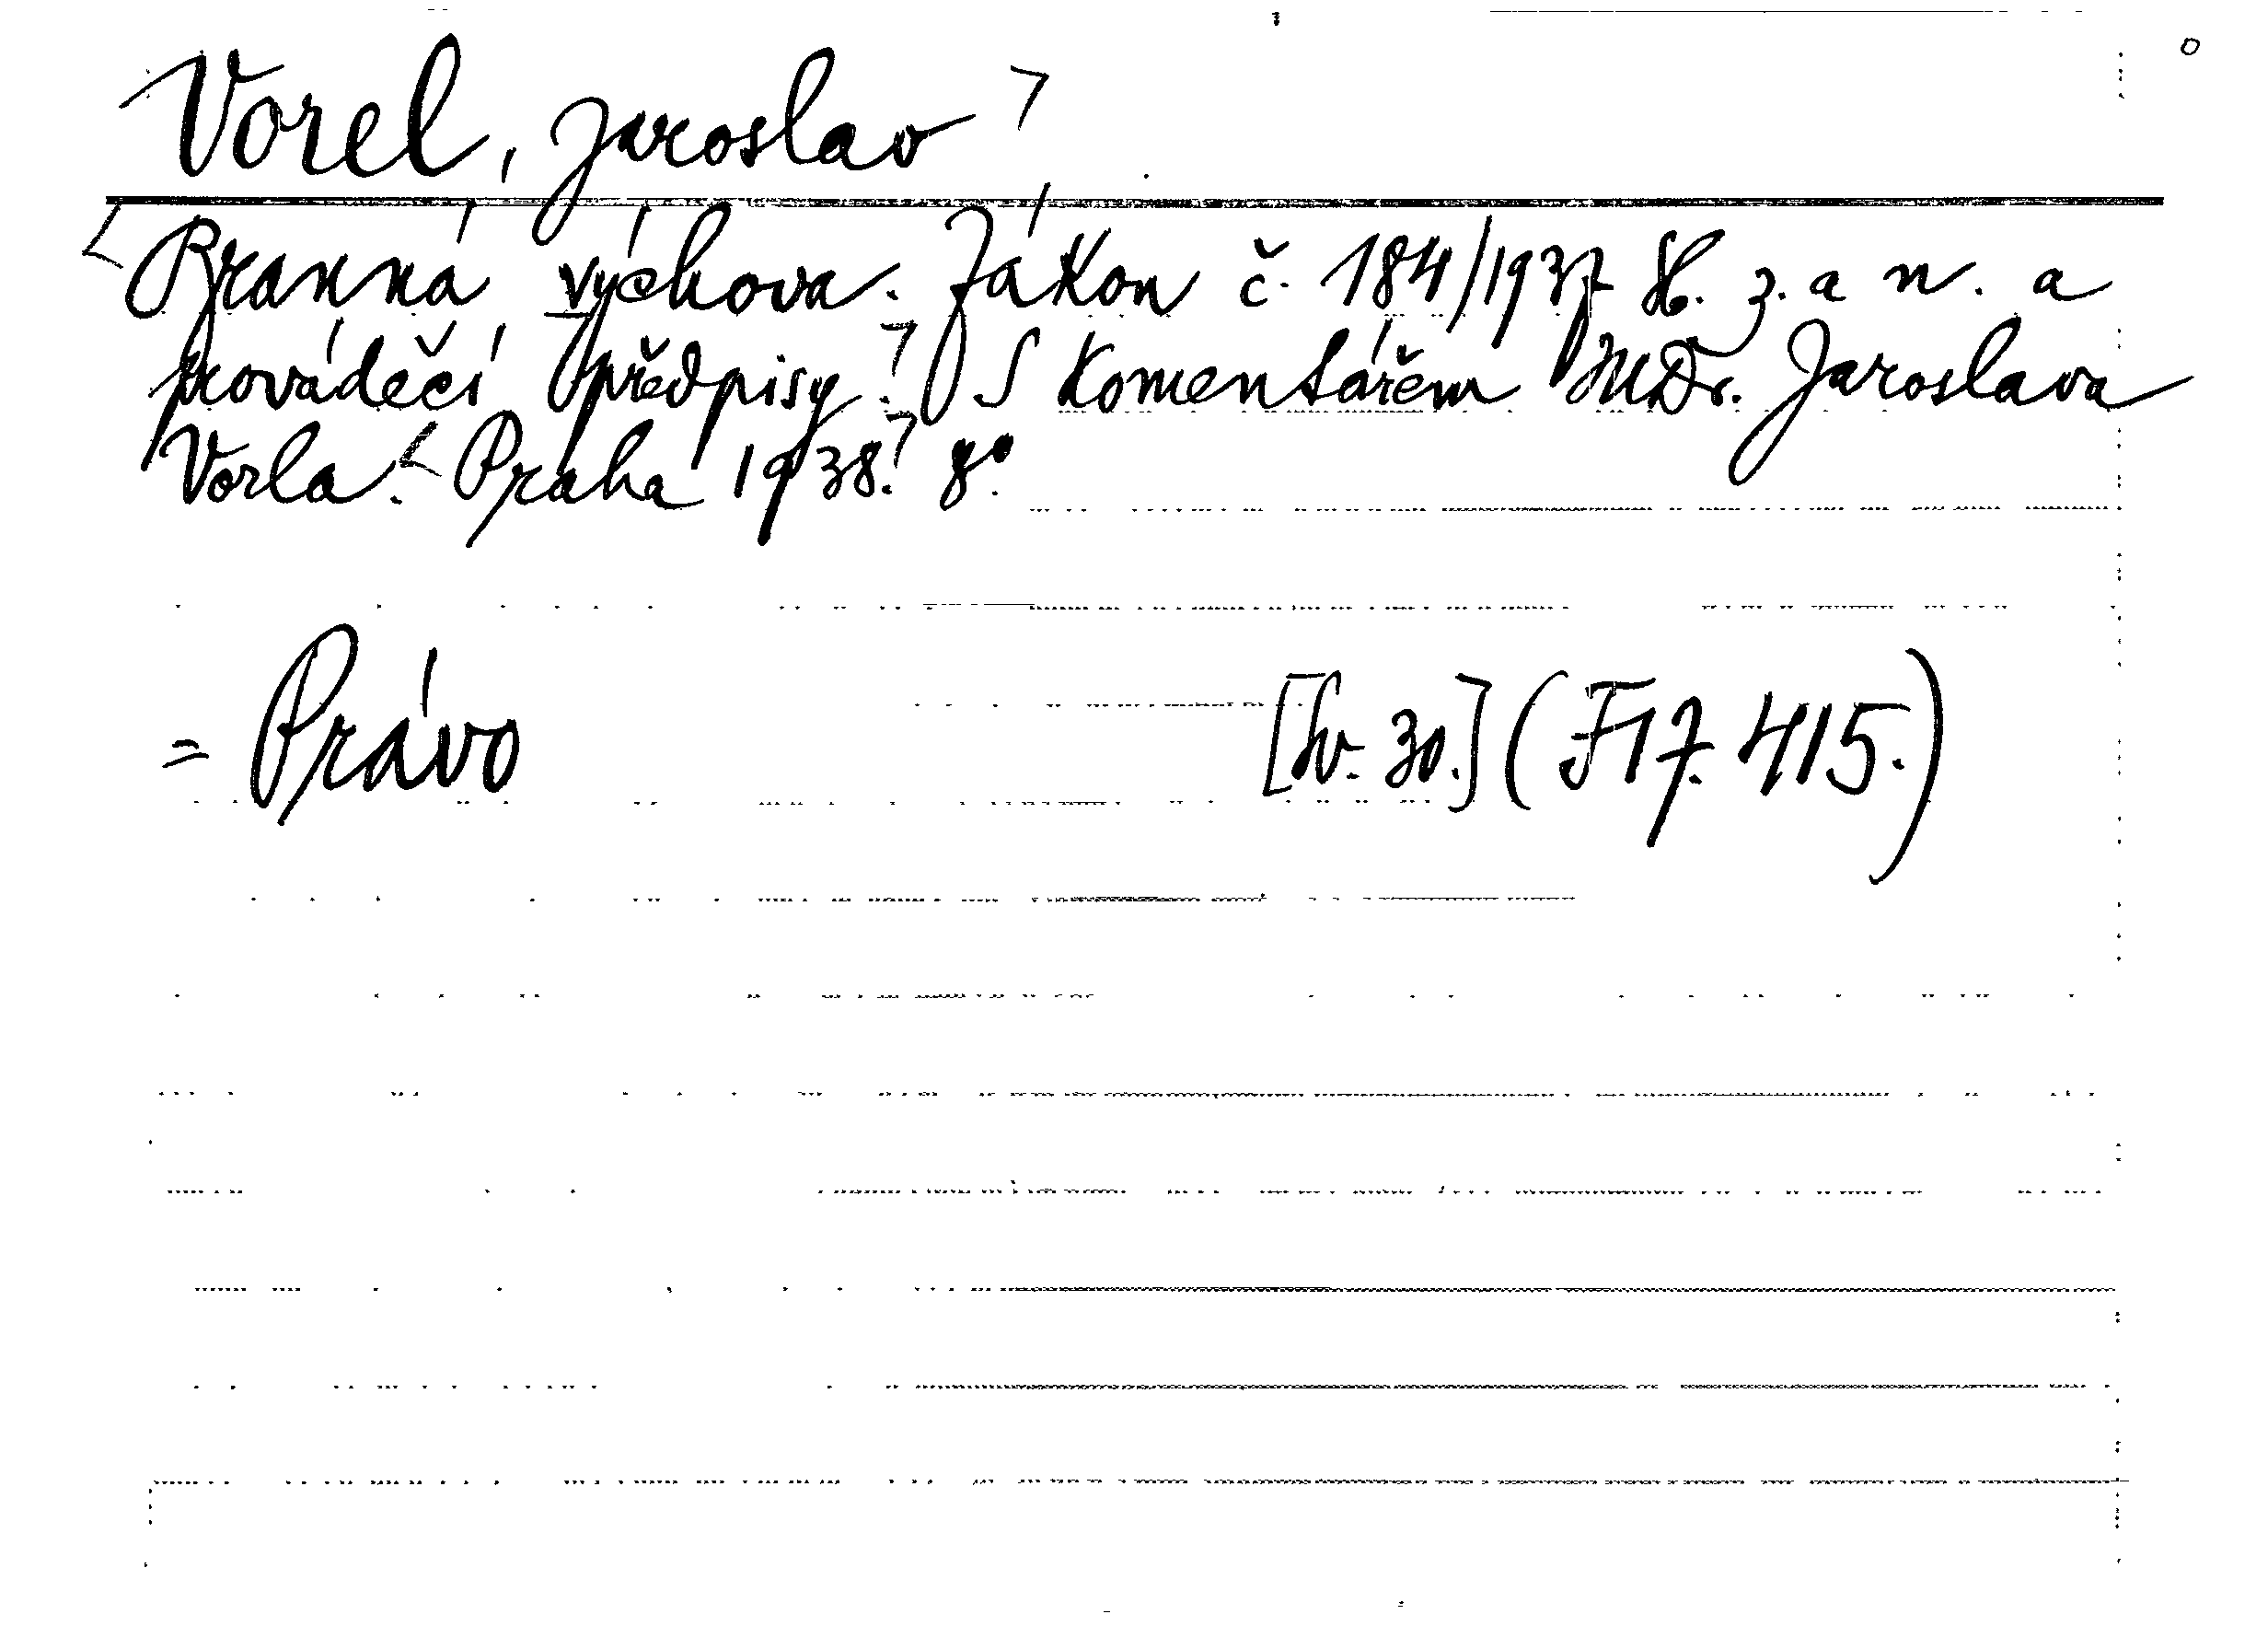 Vorel, Jaroslav
Branná výchova. Zákon č. 184/1937 Sb. z. a n. a
prováděčí předpisy. S komentářem JUDr. Jaroslava
Vorla. Praha 1938. 8°.
= Právo [Sv. 30.] (F 17. 415.)